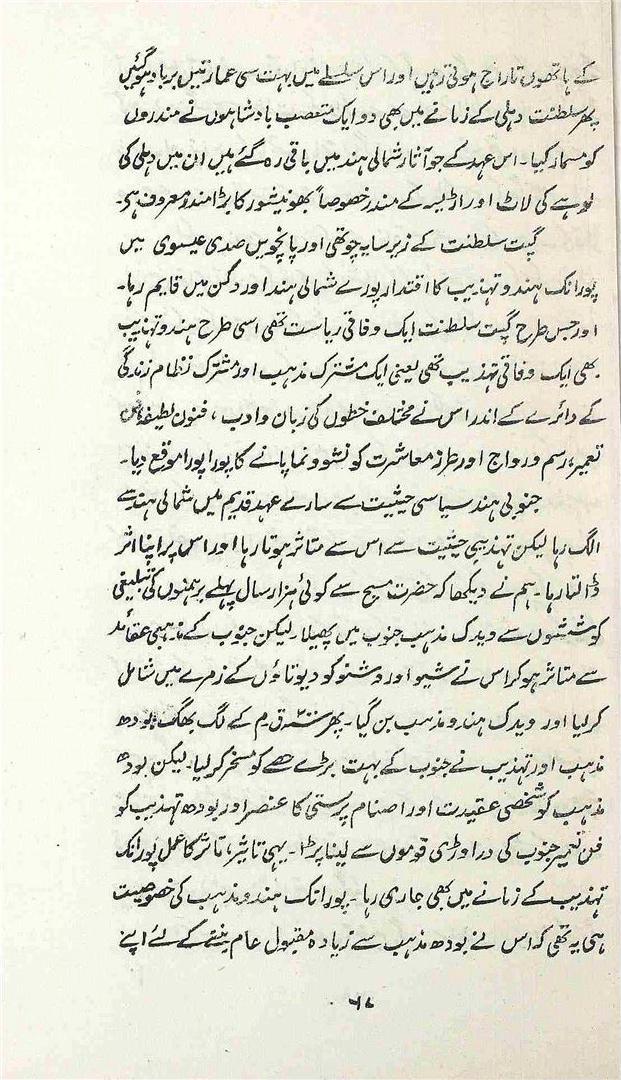 کے ہاتھوں تاراج ہوتی رہیں اور اس سلسلے میں بہت سی عمارتیں برباد ہو گئیں
پھر سلطنت دہلی کے زمانے میں بھی دو ایک متعصب بادشاہوں نے مندروں
کو مسمار کیا۔ اس عہد کے جو آثار شمالی ہند میں باقی رہ گئے ہیں ان میں دہلی کی
لوہے کی لاٹ اور اڑیسہ کے مندر خصوصاً بھونیشور کا بڑا مندر معروف ہے۔
گپت سلطنت کے زیر سایہ چوتھی اور پانچویں صدی عیسوی میں
پورانک ہندو تہذیب کا اقتدار پورے شمالی ہند اور دکن میں قایم رہا۔
اور جس طرح گپت سلطنت ایک وفاقی ریاست تھی اسی طرح ہندو تہذیب
بھی ایک وفاقی تہذیب تھی یعنی ایک مشترک مذہب اور مشترک نظام زندگی
کے دائرے کے اندر اس نے مختلف خطوں کی زبان و ادب، فنون لطیفہ، فن
تعمیر، رسم و رواج اور طرز معاشرت کو نشوونما پانے کا پورا پورا موقع دیا۔
جنوبی ہند سیاسی حیثیت سے سارے عہد قدیم میں شمالی ہند سے
الگ رہا لیکن تہذیبی حیثیت سے اس سے متاثر ہوتا رہا اور اس پر اپنا اثر
ڈالتا رہا۔ ہم نے دیکھا کہ حضرت مسیح سے کوئی ہزار سال پہلے برہمنوں کی تبلیغی
کوششوں سے ویدک مذہب جنوب میں پھیلا۔ لیکن جنوب کے مذہبی عقائد
سے متاثر ہو کر اس نے شیو اور وشنو کو دیوتاؤں کے زمرے میں شامل
کر لیا اور ویدک ہندو مذہب بن گیا۔ پھر ۲۰۰ ق م کے لگ بھگ بودھ
مذہب اور تہذیب نے جنوب کے بہت بڑے حصے کو مسخر کر لیا۔ لیکن بودھ
مذہب کو شخصی عقیدت اور اصنام پرستی کا عنصر اور بودھ تہذیب کو
فن تعمیر جنوب کی دراوڑی قوموں سے لینا پڑا۔ یہی تاثیر، تاثر کا عمل پورانک
تہذیب کے زمانے میں بھی جاری رہا۔ پورانک ہندو مذہب کی خصوصیت
ہی یہ تھی کہ اس نے بودھ مذہب سے زیادہ مقبول عام بننے کے لئے اپنے